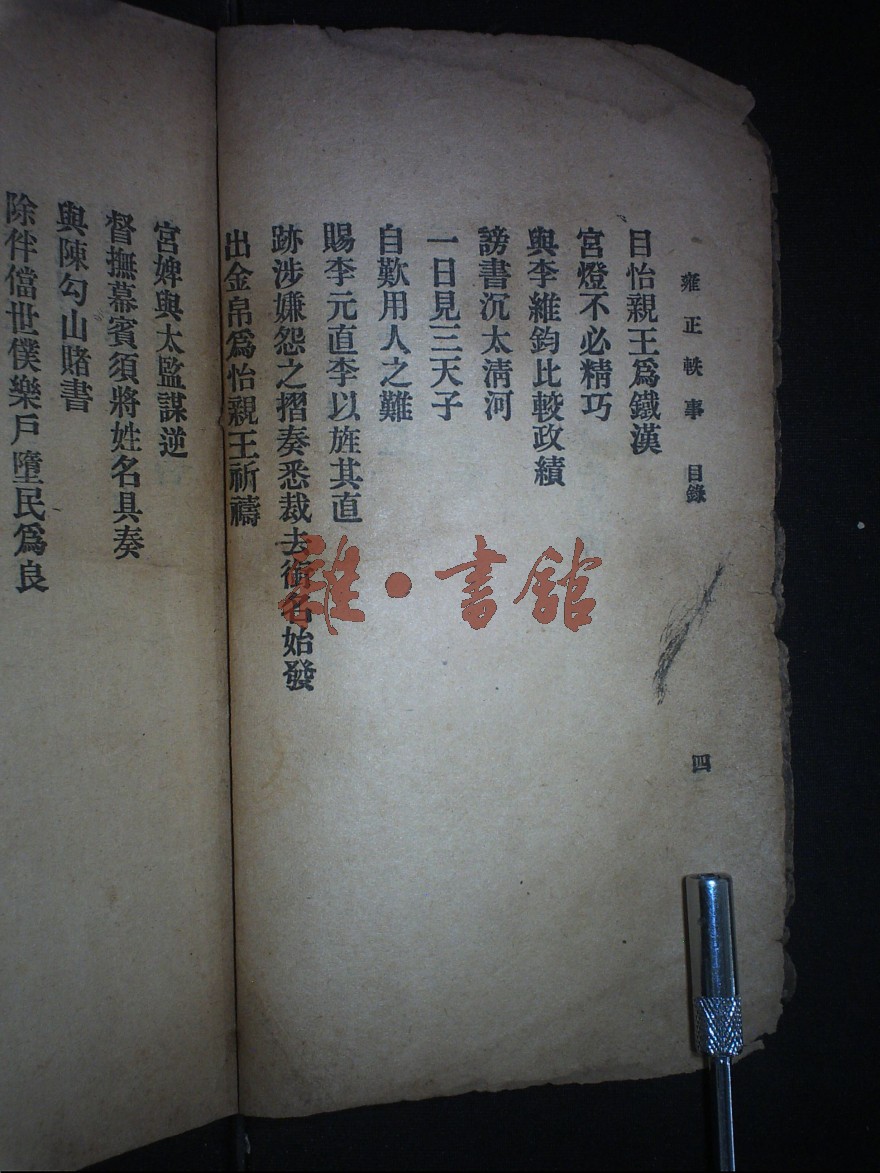 雍正軼事 目錄 四
目怡親王爲鐵漢
宮燈不必精巧
與李維鈞比較政績
謗書沉太淸河
一日見三天子
自歎用人之難
賜李元直李以旌其直
跡涉嫌怨之摺奏悉裁去銜名始發
出金帛爲怡親王祈禱
宮婢與太監謀逆
督撫幕賓須將姓名具奏
與陳勾山賭書
除伴儅世僕樂戶墮民爲良
雜·書館